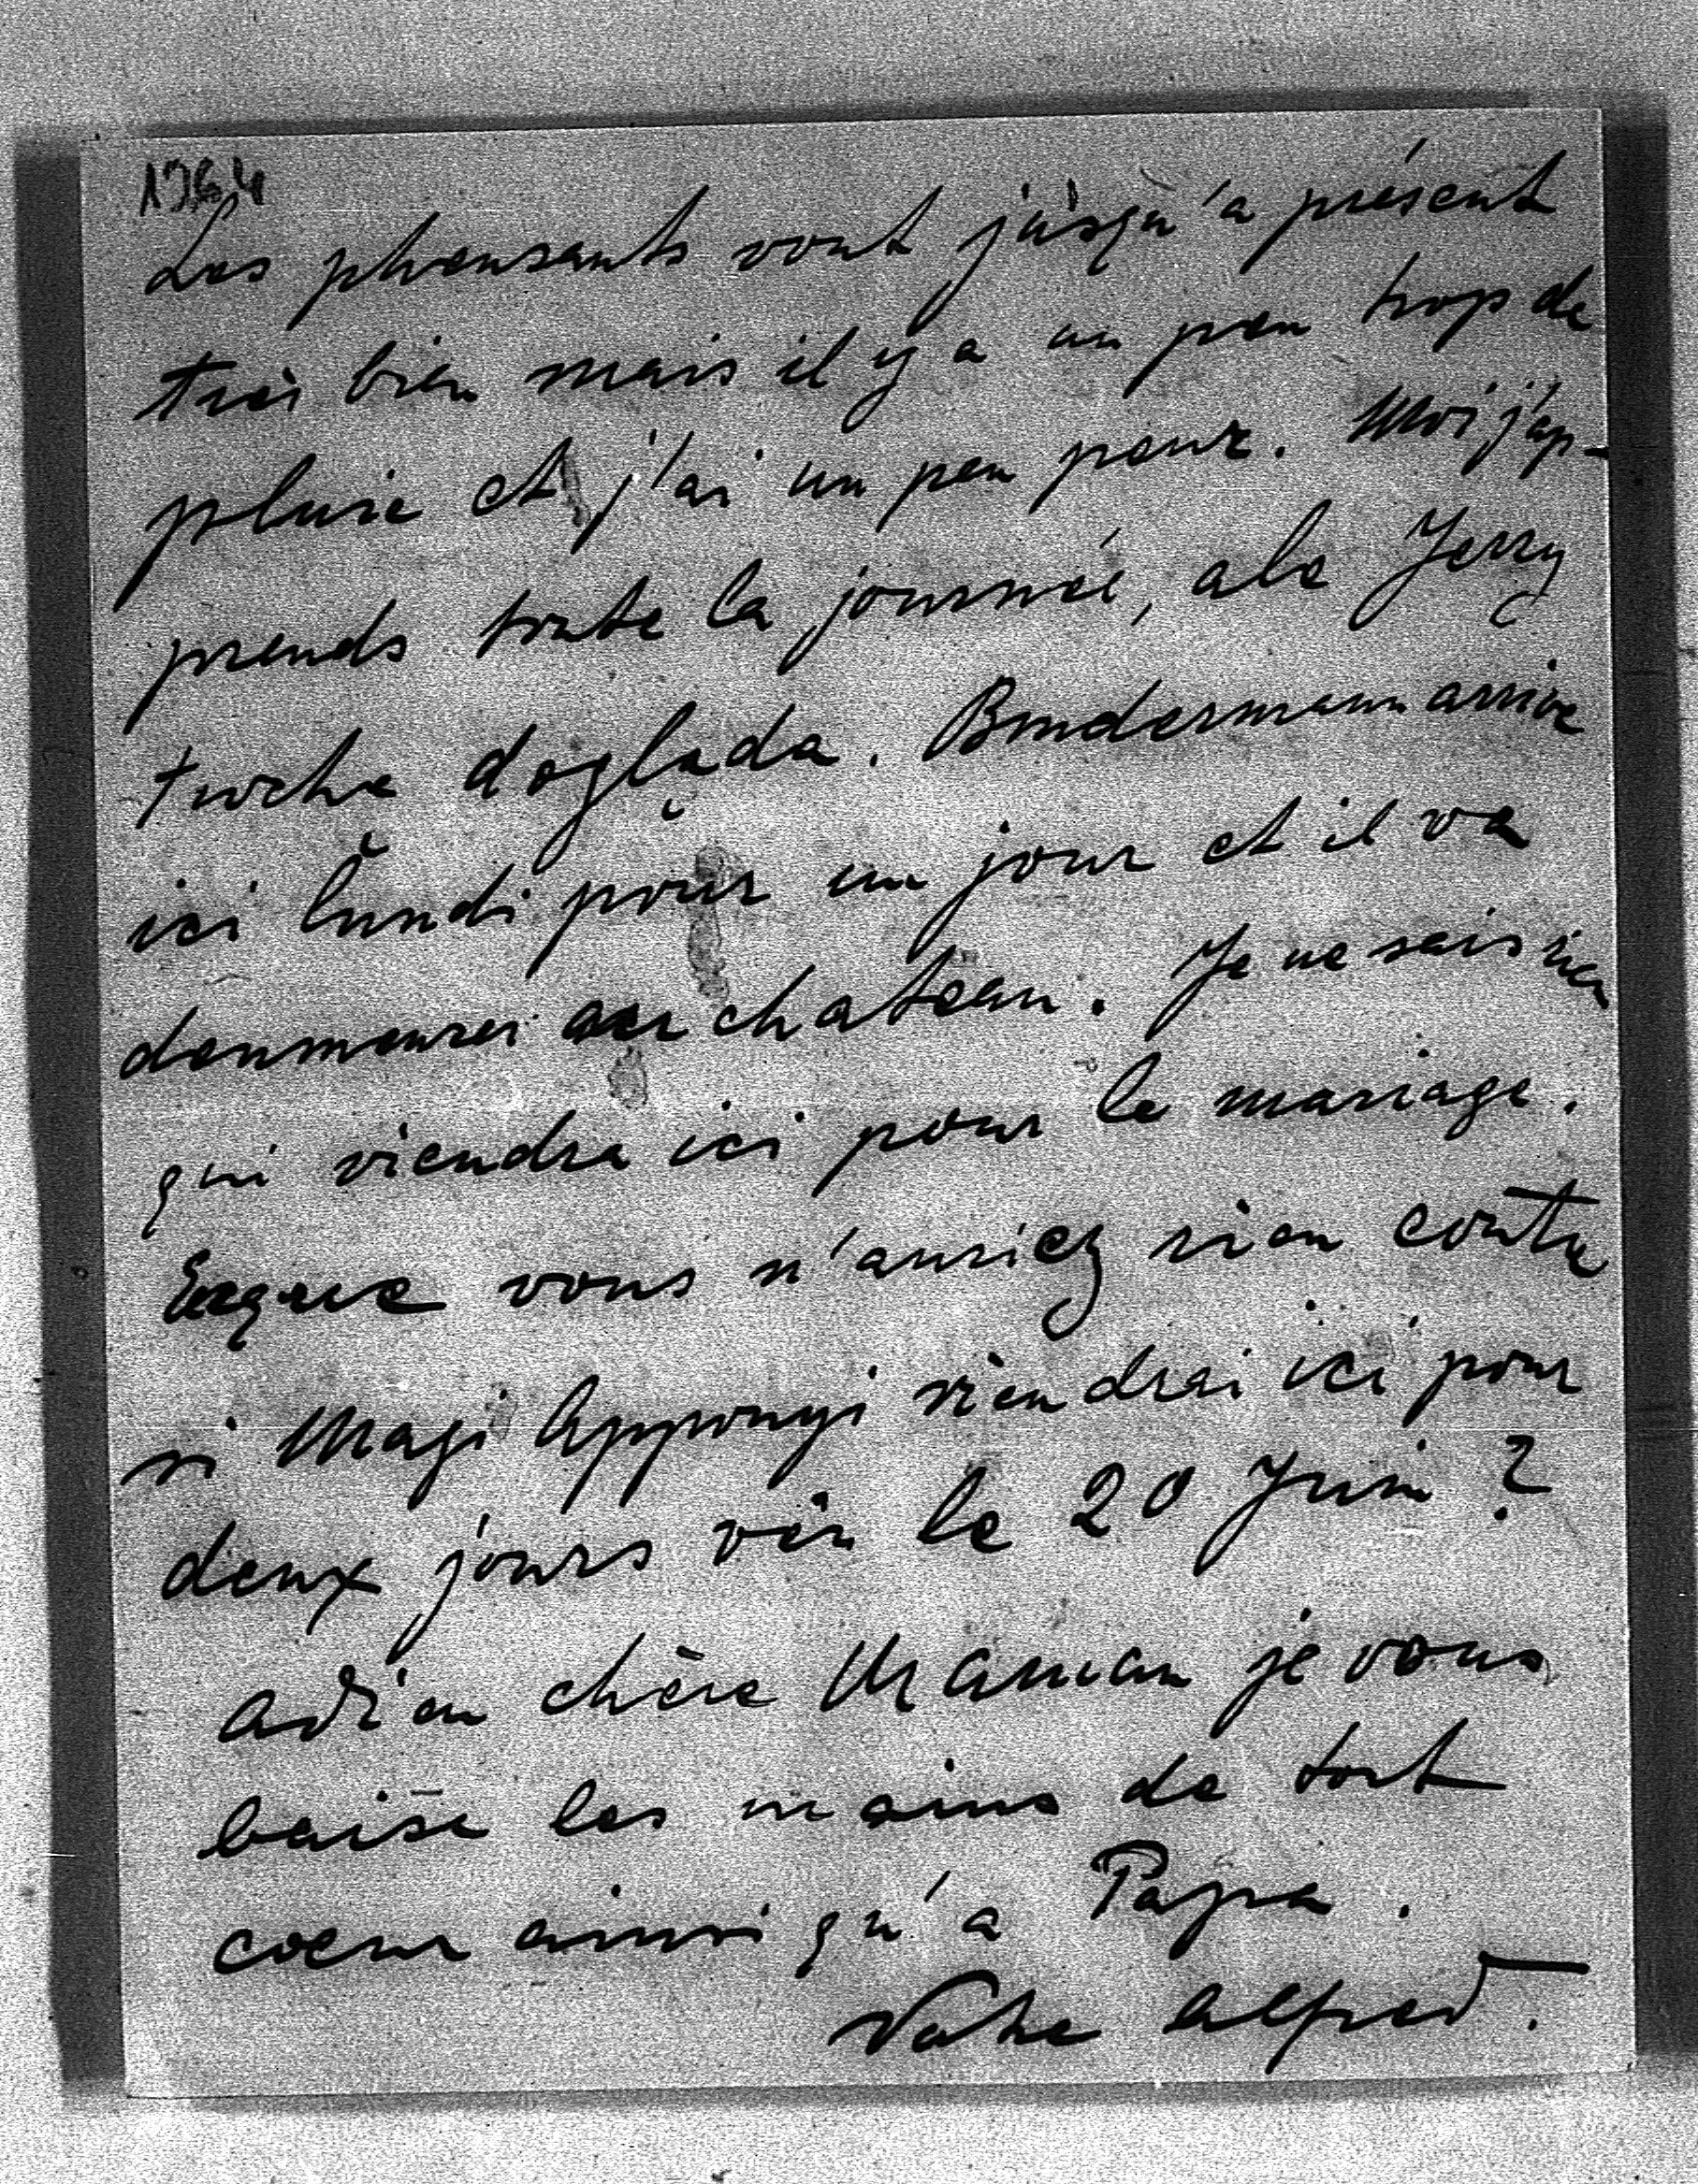 1764
Les pheusants vont jusqu'a présent
très bien mais il y a un peu trop de
pluie et j'ai un peu peur. Moi j'ap-
prends toute la journeé, ale Jerzy
troche dogląda. Bindermann arrive
ici lundi pour un jour et il va
denmeurer au chateau. Je ne sais rien
qui viendra ici pour le mariage.
Esqüe vous n'auriez rien contre
si Magi Apponyi viendrai ici pour
deux jours vèr le 20 Juin ?
Adieu chère Maman je vous
baise les mains de tout
coeur ainsi qu'a Papa.
Votre Alfred.